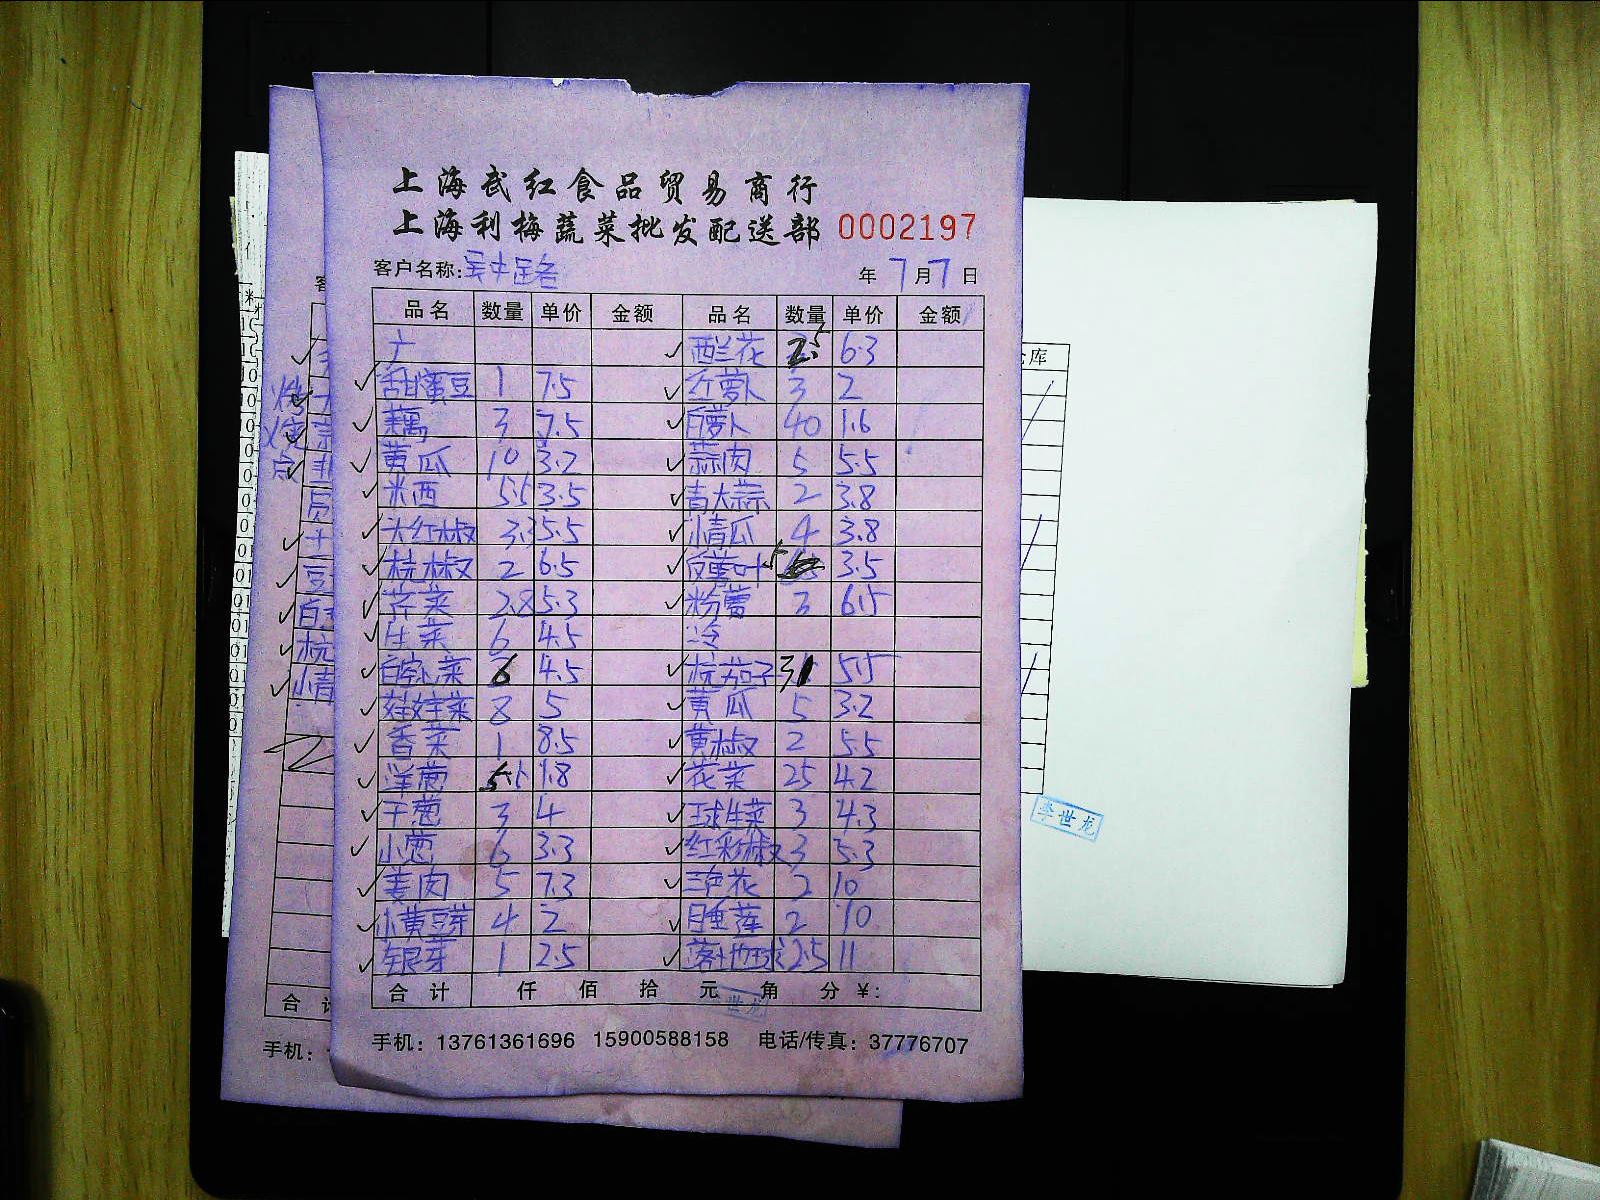 上海武红食品贸易商行
上海利梅蔬菜批发配送部 0002197
客户名称: 年 7 月 7 日
品名 数量 单价 金额 品名 数量 单价 金额
西兰花 2.5 6.3
甜蜜豆 1 7.5 红萝卜 3 2
藕 3 7.5 白萝卜 40 1.6
黄瓜 10 3.2 蒜肉 5 5.5
米西 5.5 3.5 青大蒜 2 3.8
大红椒 3.3 5.5 情瓜 4 3.8
杭椒 2 6.5 叶 5 3.5
芹菜 2.8 5.3 粉萝 3 6.5
生菜 6 4.5 冷
白菜 6 4.5 杭茄子 31 5.5
娃娃菜 8 5 黄瓜 5 3.2
香菜 1 8.5 黄椒 2 5.5
洋葱 5.5 1.8 花菜 25 4.2
干葱 3 4 球生菜 3 4.3
小葱 6 3.3 红彩椒 3 5.3
姜肉 5 7.3 三色花 2 10
小黄豆芽 4 2 睡莲 2 10
银芽 1 2.5 落地球 2.5 11
合计 仟 佰 拾 元 角 分 ¥:
手机: 13761361696 15900588158 电话/传真: 37776707
李世龙